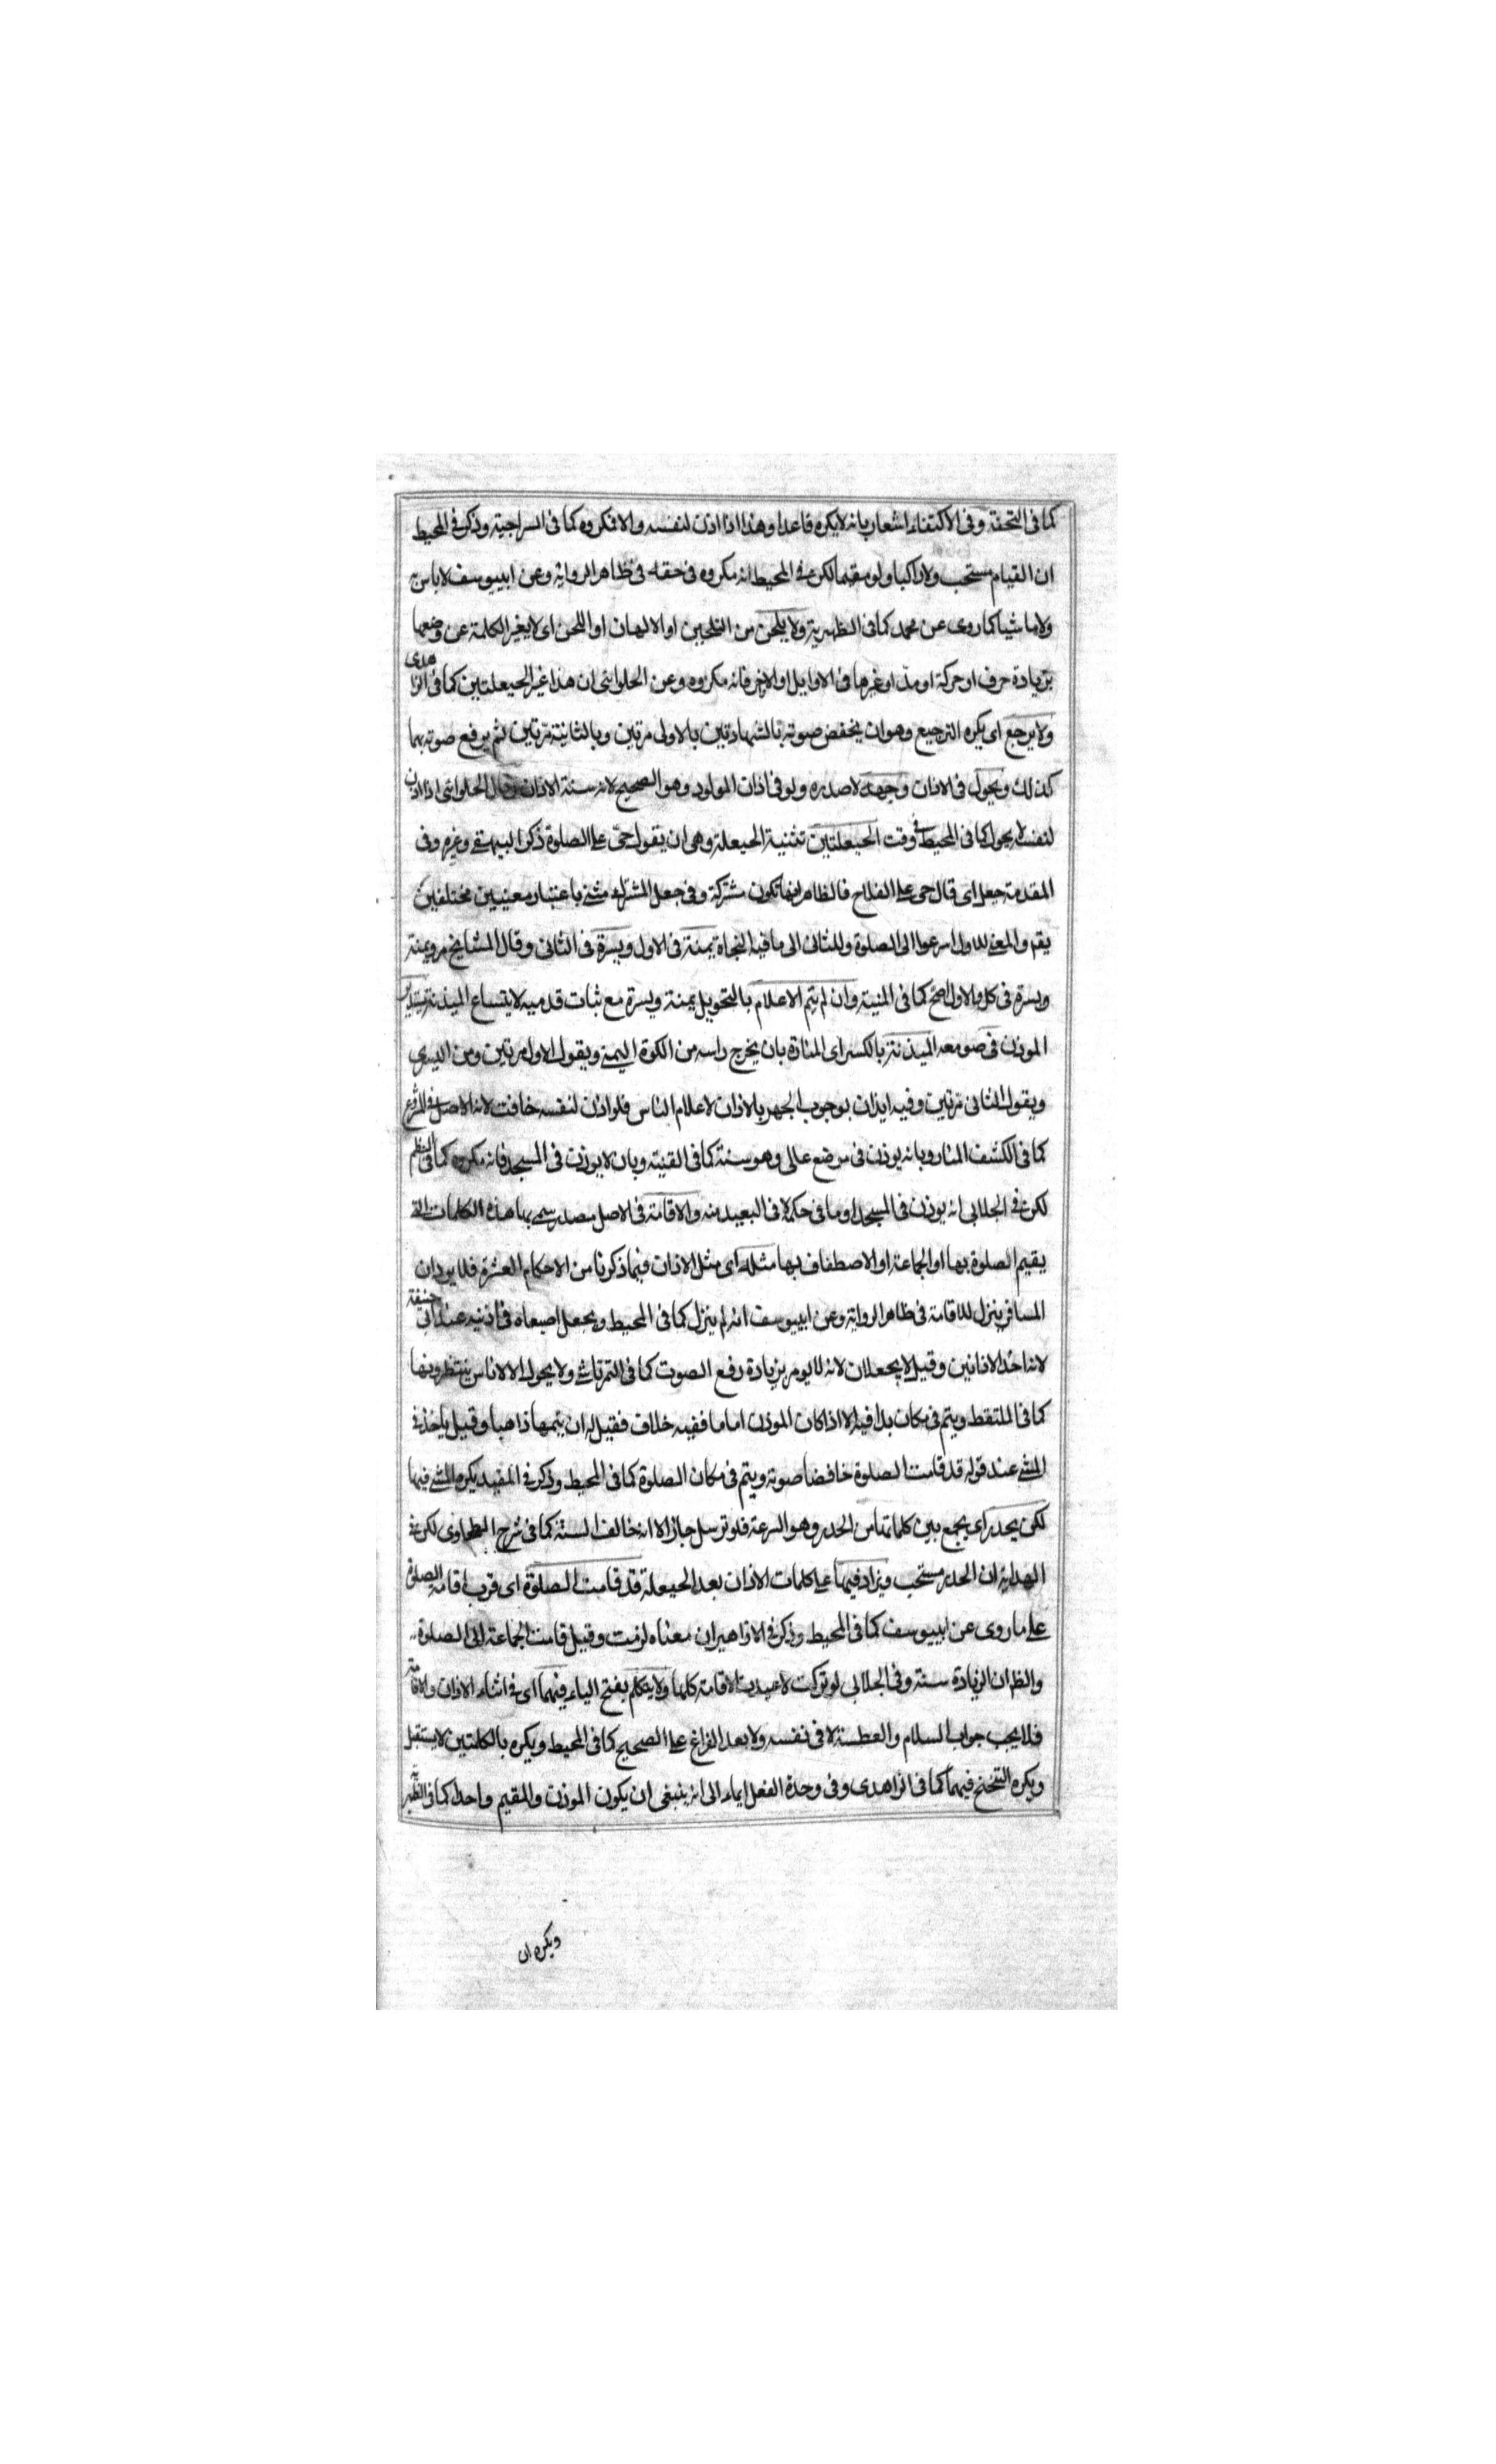 كما فى التحفة وفى الاكتفاء اشعار بانه لا يكره قاعدا وهذا اذا اذن لنفسه والا فمكروه كما فى السراجية وذكر فى المحيط
ان القيام مستحب ولا راكبا ولو مقيما لكن فى المحيط انه مكروه فى حقه فى ظاهر الرواية وعن ابييوسف لا باس به
ولا ماشيا كما روى عن محمد كما فى الظهيرية ولا يلحن من التلحين او الالهان او اللحن اى لا يغير الكلمة عن وضعها
بزيادة حرف او حركة او مد او غيرها فى الاوايل او الاخر فانه مكروه وعن الحلوانى ان هذا غير الحيعلتين كما فى الزاهدى
ولا يرجع اى يكره الترجيع وهو ان يخفض صوته بالشهادتين بالاولى مرتين وبالثانية مرتين ثم يرفع صوته بهما
كذلك ويحول فى الاذان وجهه لا صدره ولو فى اذان المولود وهو الصحيح لانه سنة الاذان وقال الحلوانى اذا اذن
لنفسه لا يحول كما فى المحيط فى وقت الحيعلتين تثنية الحيعلة وهى ان يقول حى على الصلوة ذكر البيهقى وغيره وفى
المقدمة حيعل اى قال حى على الفلاح فالظاهر انها تكون مشتركة وفى جعل المشترك مثنى باعتبار معنيين مختلفين
يقم والمعنى للاول اسرعوا الى الصلوة وللثانى الى ما فيه النجاة يمنة فى الاول ويسرة فى الثانى وقال المشايخ مرو يمنة
ويسرة فى كل والاول اصح كما فى المنية وان لم يتم الاعلام بالتحويل يمنة ويسرة مع ثبات قدميه لاتساع الميذنة يستدير
الموذن فى صومعه الميذنة بالكسر اى المنارة بان يخرج راسه من الكوة اليمنى ويقول الاول مرتين ومن اليسرى
ويقول الثانى مرتين وفيه ايذان بوجوب الجهر بالاذان لاعلام الناس فلو اذن لنفسه خافت لانه الاصل فى الشرع
كما فى الكشف المنار وبانه يوذن فى موضع عالى وهو سنة كما فى القنية وبان لا يوذن فى المسجد فانه مكروه كما فى النظم
لكن فى الجلابى انه يوذن فى المسجد او ما فى حكمه لا فى البعيد منه والاقامة فى الاصل مصدر سمى بها هذه الكلمات التى
يقيم الصلوة بها او الجماعة او الاصطفاف بها مثله اى مثل الاذان فيما ذكرنا من الاحكام العشرة فلا يرد ان
المسافر ينزل للاقامة فى ظاهر الرواية وعن ابييوسف انه لم ينزل كما فى المحيط ويجعل اصبعاه فى اذنيه عند ابى حنيفة
لانه احد الاذانين وقيل لا يجعلان لانه لا يومر بزيادة رفع الصوت كما فى التمرتاشى ولا يحول الا لاناس ينتظرونها
كما فى الملتقط ويتم فى مكان بدا فيه الا اذا كان الموذن اماما ففيه خلاف فقيل له ان يتمها ذاهبا وقيل ياخذ فى
المشى عند قوله قد قامت الصلوة خافضا صوته ويتم فى مكان الصلوة كما فى المحيط وذكر فى المفيد يكره المشى فيها
لكن يحدر اى يجمع بين كلماتها من الحدر وهو السرعة فلو ترسل جاز الا انه خالف السنة كما فى شرح الطحاوى لكن فى
الهداية ان الحدر مستحب ويزاد فيها على كلمات الاذان بعد الحيعلة قد قامت الصلوة اى قرب اقامة الصلوة
على ما روى عن ابييوسف كما فى المحيط وذكر فى الازاهير ان معناه لزمت وقيل قامت الجماعة الى الصلوة
والظ ان الزيادة سنة وفى الجلابى لو تركت لاعيدت الاقامة كلها ولا يتكلم بفتح الياء فيهما اى فى اثناء الاذان والاقامة
فلا يجب جواب السلام والعطسة لا فى نفسه ولا بعد الفراغ على الصحيح كما فى المحيط ويكره بالكلمتين لا يستقبل
ويكره التنحنح فيهما كما فى الزاهدى وفى وحدة الفعل ايماء الى انه ينبغى ان يكون الموذن والمقيم واحدا كما فى الظهيرية
ويكره ان